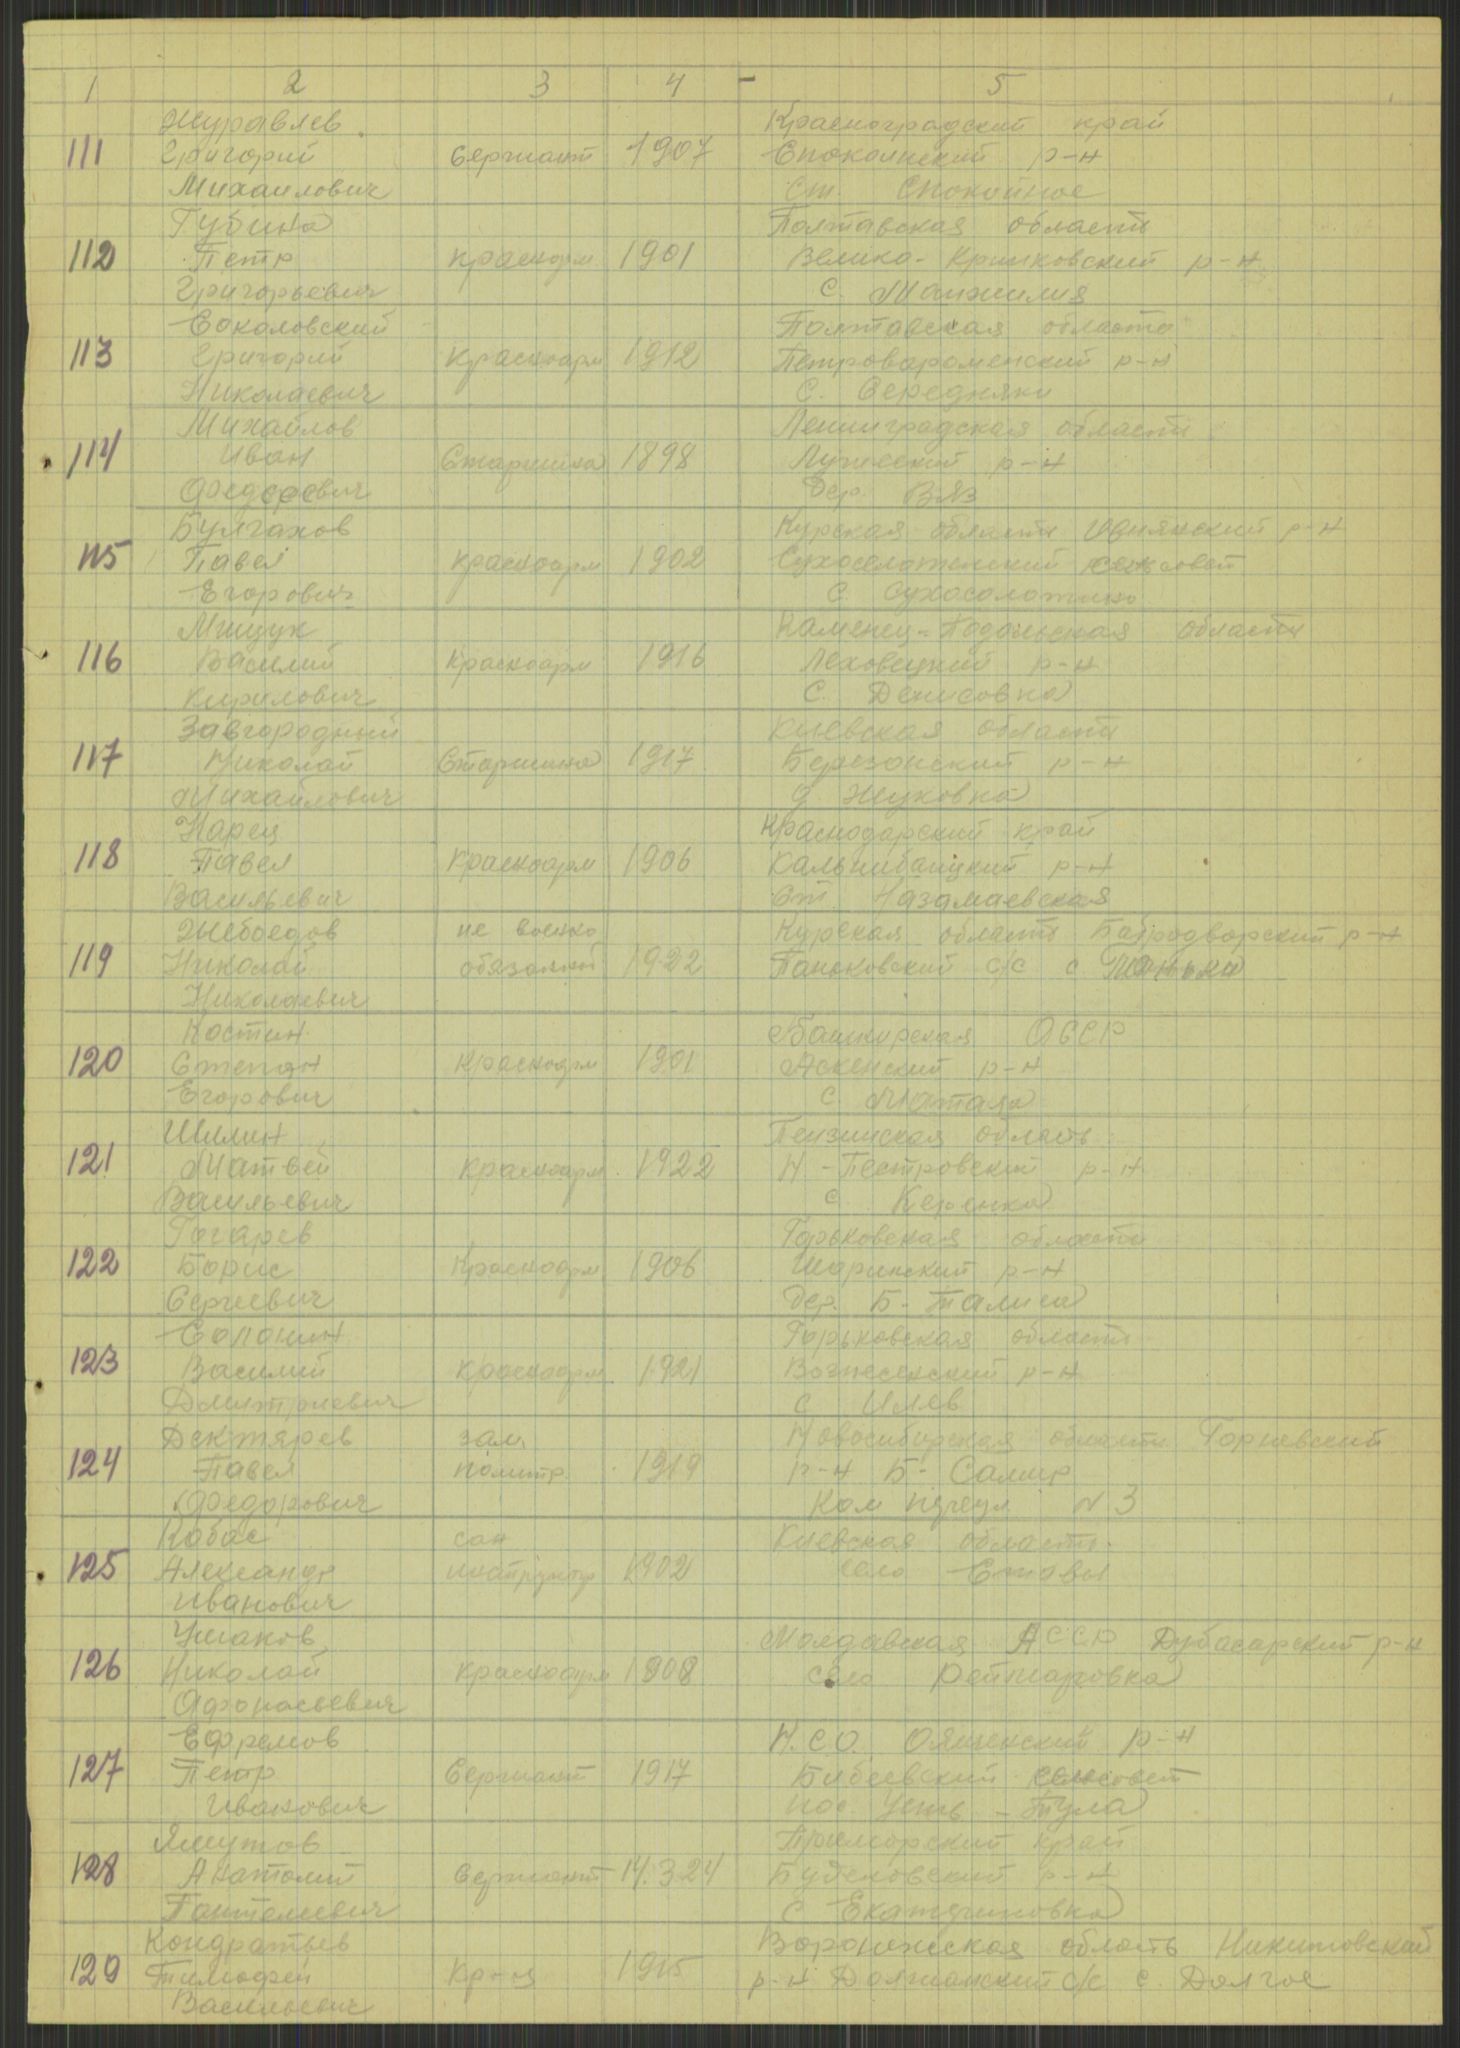 1 2 3 4 - 5
Журавлев Красноградский край
111 Григорий Сержант 1907 Спокоинский р-н
Михаилович ст. Спокойное
Губина Полтавская область
112 Петр Красноарм 1901 Велико-Крынковский р-н
Григорьевич с. Манжилия
Соколовский Полтавская область
113 Григорий Красноарм 1912 Петровароменский р-н
Николаевич с. Середняки
Михайлов Ленинградская область
114 Иван Старшина 1898 Лужский р-н
Федорович Дер. Вяз
Булгаков Курская область Ивнянский р-н
115 Павел Красноарм 1902 сельсовет
Егорович с. Сухосолотино
Мищук Каменец-Подольская область
116 Василий Красноарм 1916 Ляховецкий р-н
Кирилович с. Денисовка
Завгородный Киевская область
117 Николай Старшина 1917 Березанский р-н
Михайлович д Жуковка
Карец Краснодарский край
118 Павел Красноарм 1906 р-н
Васильевич ст.
не военно Курская область р-н
119 Николай обязаный 1922 Паньковский с/с с Паньки
Николаевич
Костин Башкирская АССР
120 Степан Красноарм 1901 Аскенский р-н
Егорович с.
Шилин Пензинская область
121 Матвей Красноарм. 1922 Н-Пестровский р-н
Васильевич с. Керенка
Гогарев Горьковская область
122 Борис Красноарм 1906 Шаринский р-н
Сергеевич Дер. Б-
Сапонин Горьковская область
123 Василий Красноарм. 1921 Вознесенский р-н
Дмитриевич с Илев
Дектярев зам. Новосибирская область
124 Павел политр. 1919 р-н Б-
Федорович N 3
Кобас сан Киевская область
125 Александр инструктор 1902 село Ставы
Иванович
Ушаков Молдавская АССР Дубасарский р-н
126 Николай Красноарм 1908 село
Афонасьевич
Ефремов Н.С.О. Ояшенский р-н
127 Петр Сержант 1917 Бибеевский сельсовет
Иванович пос. Усть-Тула
Яшутов Приморский край
128 Анатолий Сержант 14.3.24 Буденовский р-н
Пантелеевич с Екатериновка
Кондратьев Воронежская область Никитовский
129 Тимофей Кр-ц 1915 р-н Должанский с/с с. Долгое
Васильевич